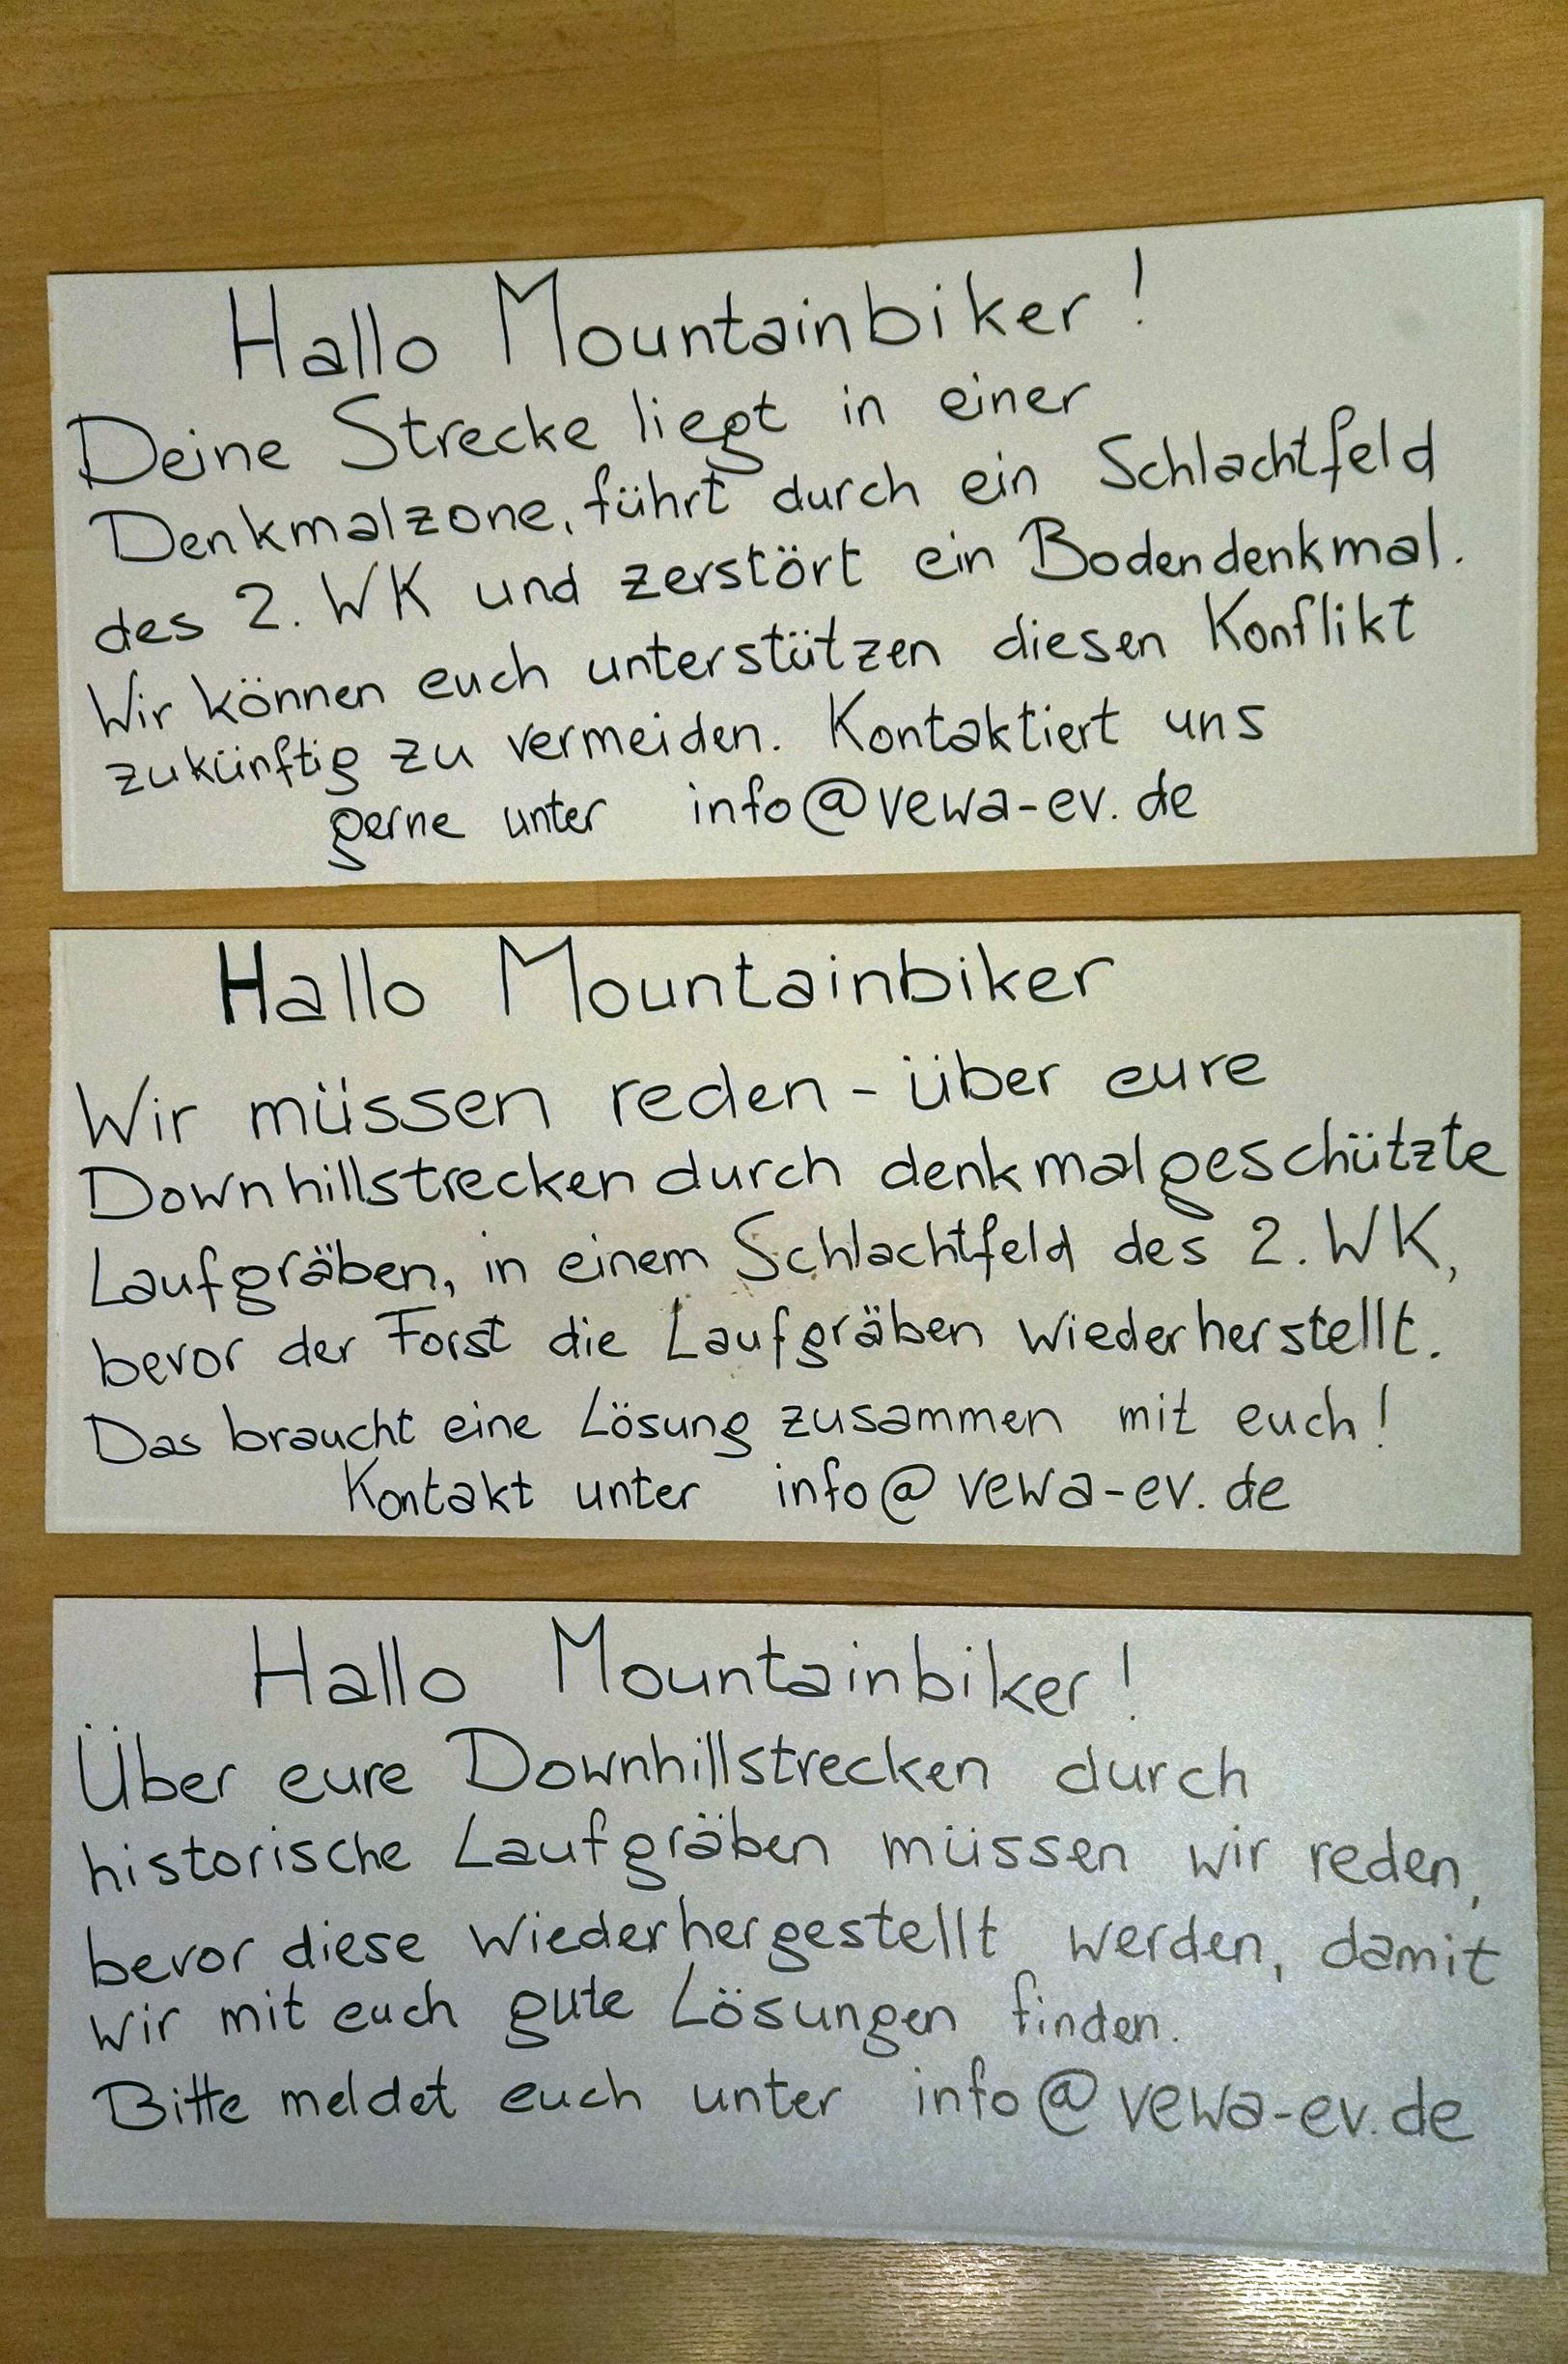 Hallo Mountainbiker!
Deine Strecke liegt in einer
Denkmalzone, führt durch ein Schlachtfeld
des 2. WK und zerstört ein Bodendenkmal.
Wir können euch unterstützen diesen Konflikt
zukünftig zu vermeiden. Kontaktiert uns
gerne unter info@vewa-ev.de
Hallo Mountainbiker
Wir müssen reden - über eure
Downhillstrecken durch denkmalgeschützte
Laufgräben, in einem Schlachtfeld des 2. WK,
bevor der Forst die Laufgräben wiederherstellt.
Das braucht eine Lösung zusammen mit euch!
Kontakt unter info@vewa-ev.de
Hallo Mountainbiker!
Über eure Downhillstrecken durch
historische Laufgräben müssen wir reden,
bevor diese wiederhergestellt werden, damit
wir mit euch gute Lösungen finden.
Bitte meldet euch unter info@vewa-ev.de